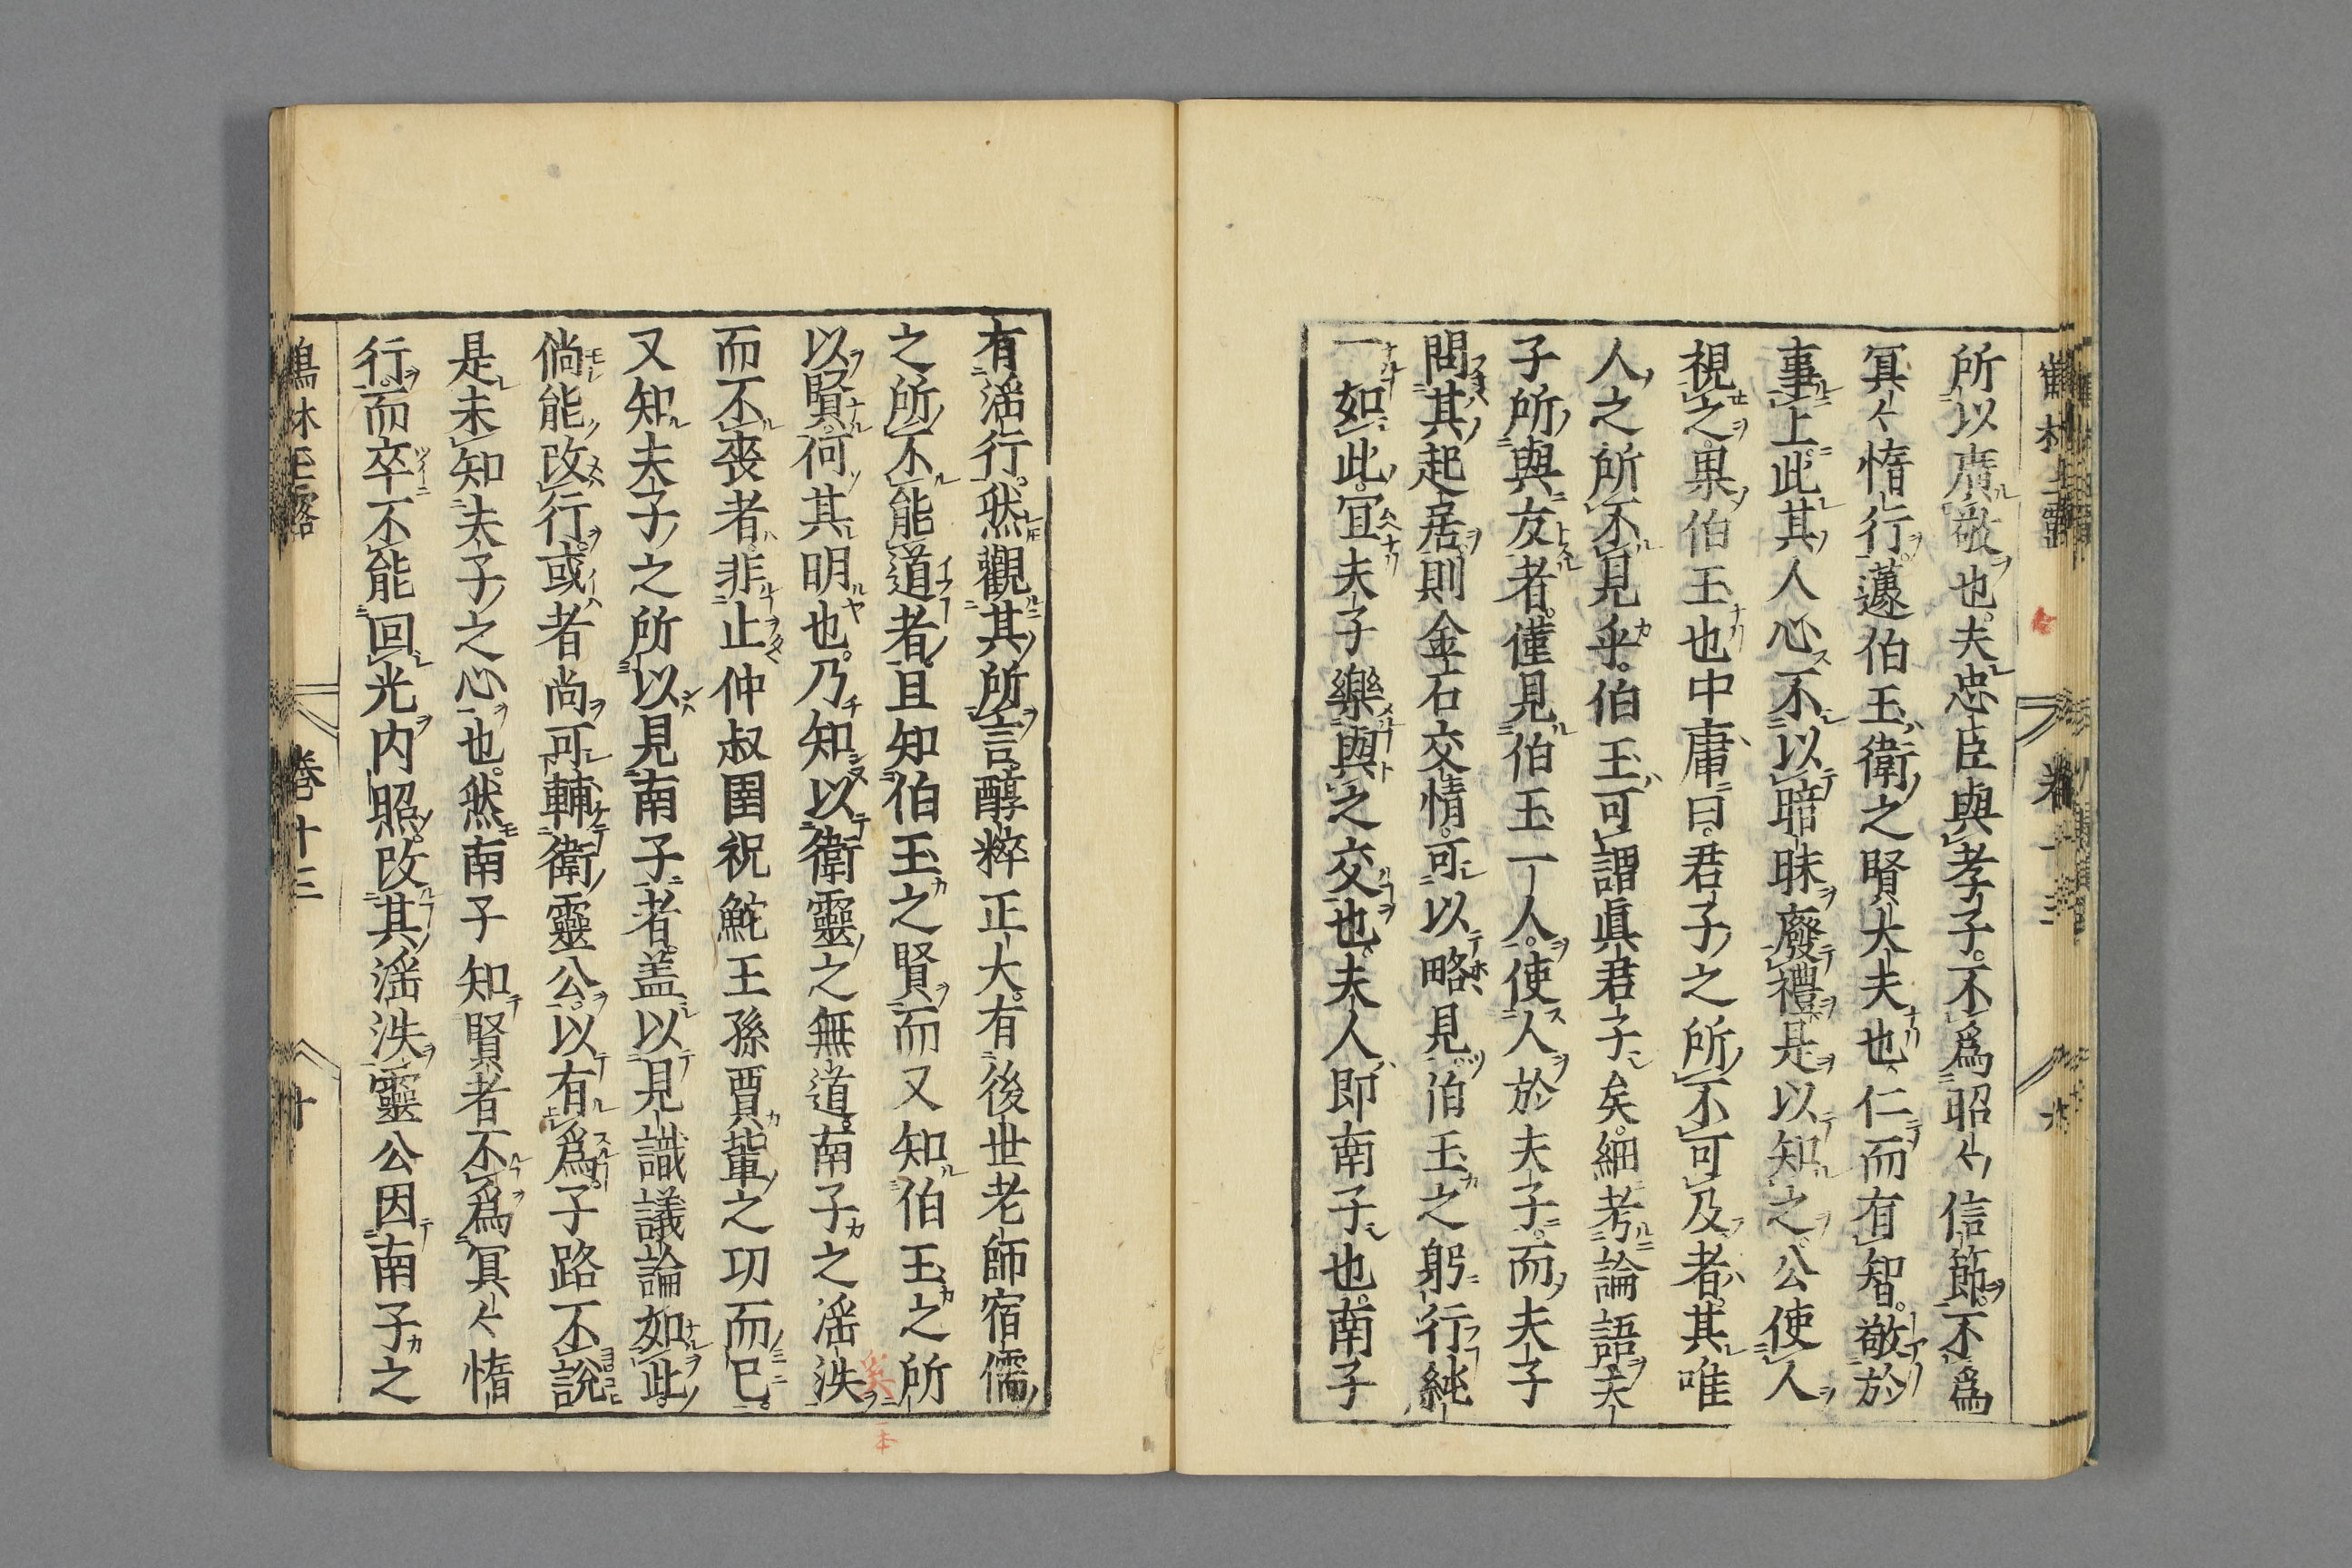 所以廣敬也。夫忠臣與孝子。不爲昭昭信節。不爲
冥冥惰行。蘧伯玉衛之賢大夫也。仁而有智。敬於
事上。此其人必不以暗昧廢禮。是以知之。公使人
視之。果伯玉也。中庸曰。君子之所不可及者。其唯
人之所不見乎。伯玉可謂眞君子矣。細考論語。夫
子所與友者。僅見伯玉一人。使人於夫子。而夫子
問其起居。則金石交情。可以略見。伯玉之躬行純
一如此。宜夫子樂與之交也。夫人即南子也。南子
有滛行。然觀其所言醇粹正大。有後世老師宿儒
之所不能道者。且知伯玉之賢。而又知伯玉之所
以賢。何其明也。乃知以衛靈之無道。南子之滛泆
而不喪者。非止仲叔圉祝鮀王孫賈輩之功而已。
又知夫子之所以見南子者。蓋以見識議論如此。
倘能改行。或者尚可輔衛靈公。以有爲。子路不說。
是未知夫子之心也。然南子知賢者不爲冥冥惰
行。而卒不能回光内照。改其滛泆。靈公因南子之
鶴林玉露 卷十三 十